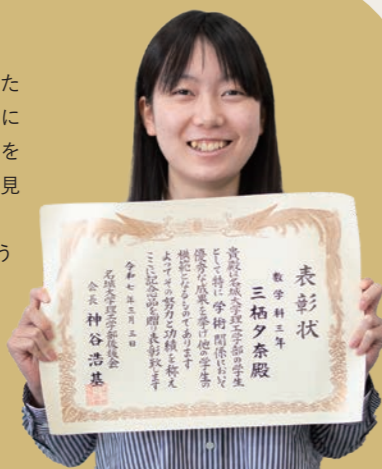 た
に
を
見
う
表彰状
数学科三年
三栖夕奈殿
貴殿は名城大学理工学部の学生
として特に学術関係において
優秀な成果を挙げ他の学生の
模範となるものであります
よってその努力と功績を称え
ここに記念品を贈り表彰致します
令和七年三月三日
名城大学理工学部後援会
会長 神谷浩基